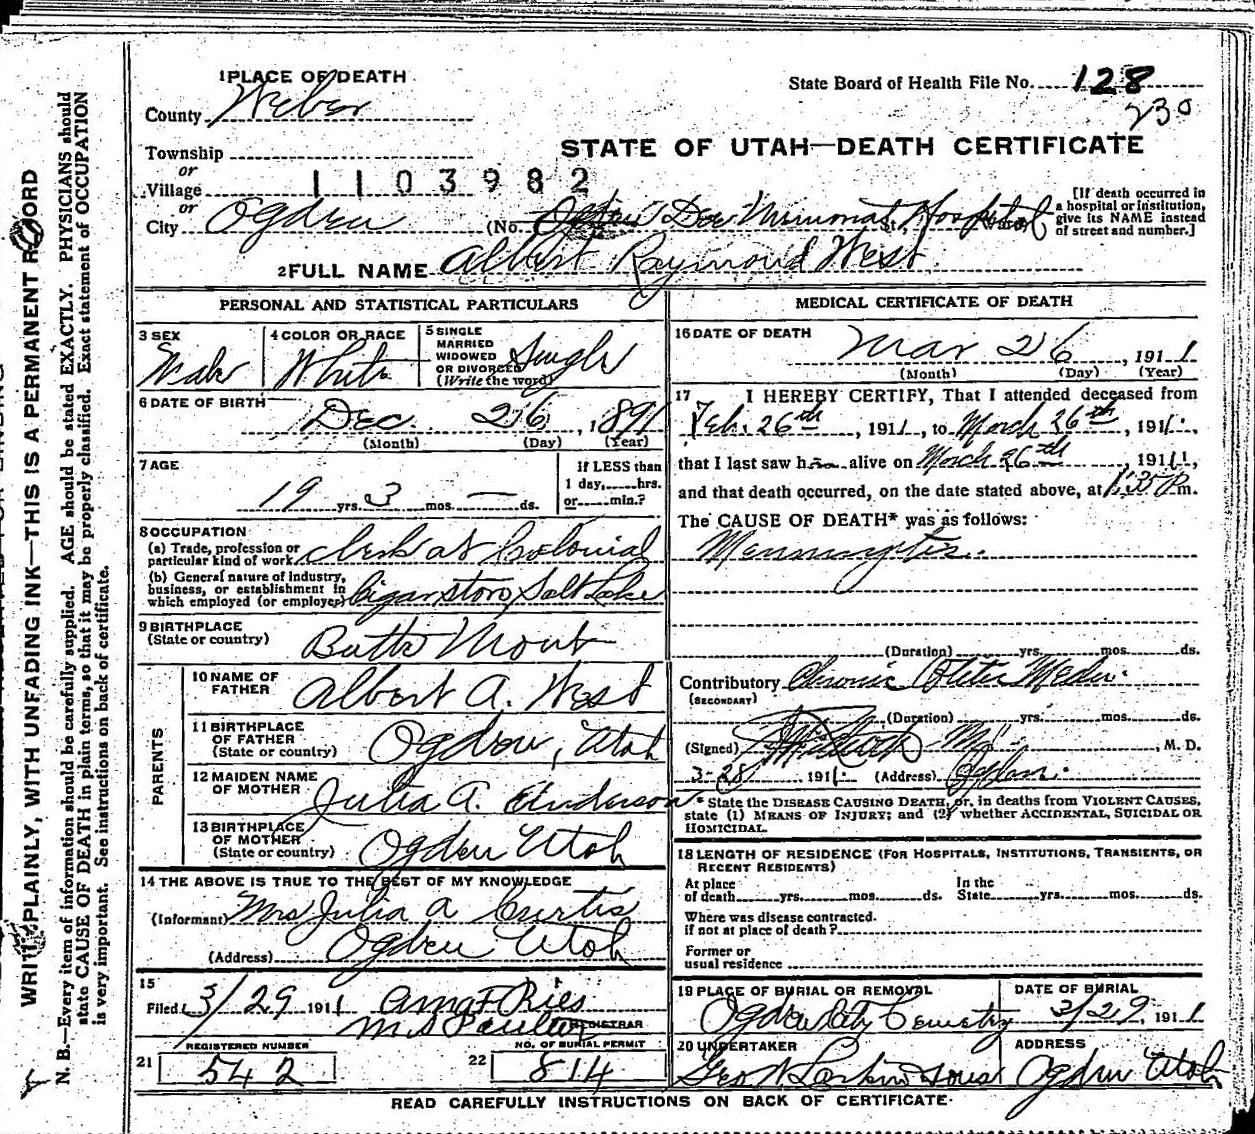 1 PLACE OF DEATH
State Board of Health File No. 128
230
County Weber
STATE OF UTAH—DEATH CERTIFICATE
Township
or
Village 1103982
or
City Ogden (No. Dee Memorial St. Hospital Ward)
[If death occurred in
a hospital or institution,
give its NAME instead
of street and number.]
2 FULL NAME Albert Raymond West
PERSONAL AND STATISTICAL PARTICULARS
3 SEX Male
4 COLOR OR RACE White
5 SINGLE
MARRIED
WIDOWED
OR DIVORCED
(Write the word) Single
6 DATE OF BIRTH Dec. 26, 1891
(Month) (Day) (Year)
7 AGE
19 yrs. 3 mos. — ds.
If LESS than
1 day, hrs.
or min.?
8 OCCUPATION
(a) Trade, profession or
particular kind of work Clerk at Colonial
(b) General nature of industry,
business, or establishment in
which employed (or employer) Cigar store Salt Lake
9 BIRTHPLACE
(State or country) Butte Mont
PARENTS
10 NAME OF
FATHER Albert A. West
11 BIRTHPLACE
OF FATHER
(State or country) Ogden, Utah
12 MAIDEN NAME
OF MOTHER Julia A. Anderson
13 BIRTHPLACE
OF MOTHER
(State or country) Ogden Utah
14 THE ABOVE IS TRUE TO THE BEST OF MY KNOWLEDGE
(Informant) Mrs Julia A Curtis
(Address) Ogden Utah
15
Filed 3/29 1911
REGISTRAR
REGISTERED NUMBER
21 542
NO. OF BURIAL PERMIT
22 814
MEDICAL CERTIFICATE OF DEATH
16 DATE OF DEATH Mar 26, 1911
(Month) (Day) (Year)
17 I HEREBY CERTIFY, That I attended deceased from
Feb. 26th, 1911, to March 26th, 1911.
that I last saw h alive on March 26th, 1911,
and that death occurred, on the date stated above, at 1:35 P.m.
The CAUSE OF DEATH* was as follows:
Menningitis.
(Duration) yrs. mos. ds.
Contributory Chronic Otitis Media.
(SECONDARY)
(Duration) yrs. mos. ds.
(Signed) , M. D.
3-28 1911. (Address) Ogden.
* State the DISEASE CAUSING DEATH, or, in deaths from VIOLENT CAUSES,
state (1) MEANS OF INJURY; and (2) whether ACCIDENTAL, SUICIDAL OR
HOMICIDAL.
18 LENGTH OF RESIDENCE (FOR HOSPITALS, INSTITUTIONS, TRANSIENTS, OR
RECENT RESIDENTS)
At place
of death yrs. mos. ds.
In the
State yrs. mos. ds.
Where was disease contracted.
if not at place of death?
Former or
usual residence
19 PLACE OF BURIAL OR REMOVAL
Ogden City Cemetry
DATE OF BURIAL
3/29, 1911
20 UNDERTAKER
Geo W Larkin Sons
ADDRESS
Ogden Utah
READ CAREFULLY INSTRUCTIONS ON BACK OF CERTIFICATE.
WRITE PLAINLY, WITH UNFADING INK—THIS IS A PERMANENT RECORD
N. B.—Every item of information should be carefully supplied. AGE should be stated EXACTLY. PHYSICIANS should
state CAUSE OF DEATH in plain terms, so that it may be properly classified. Exact statement of OCCUPATION
is very important. See instructions on back of certificate.